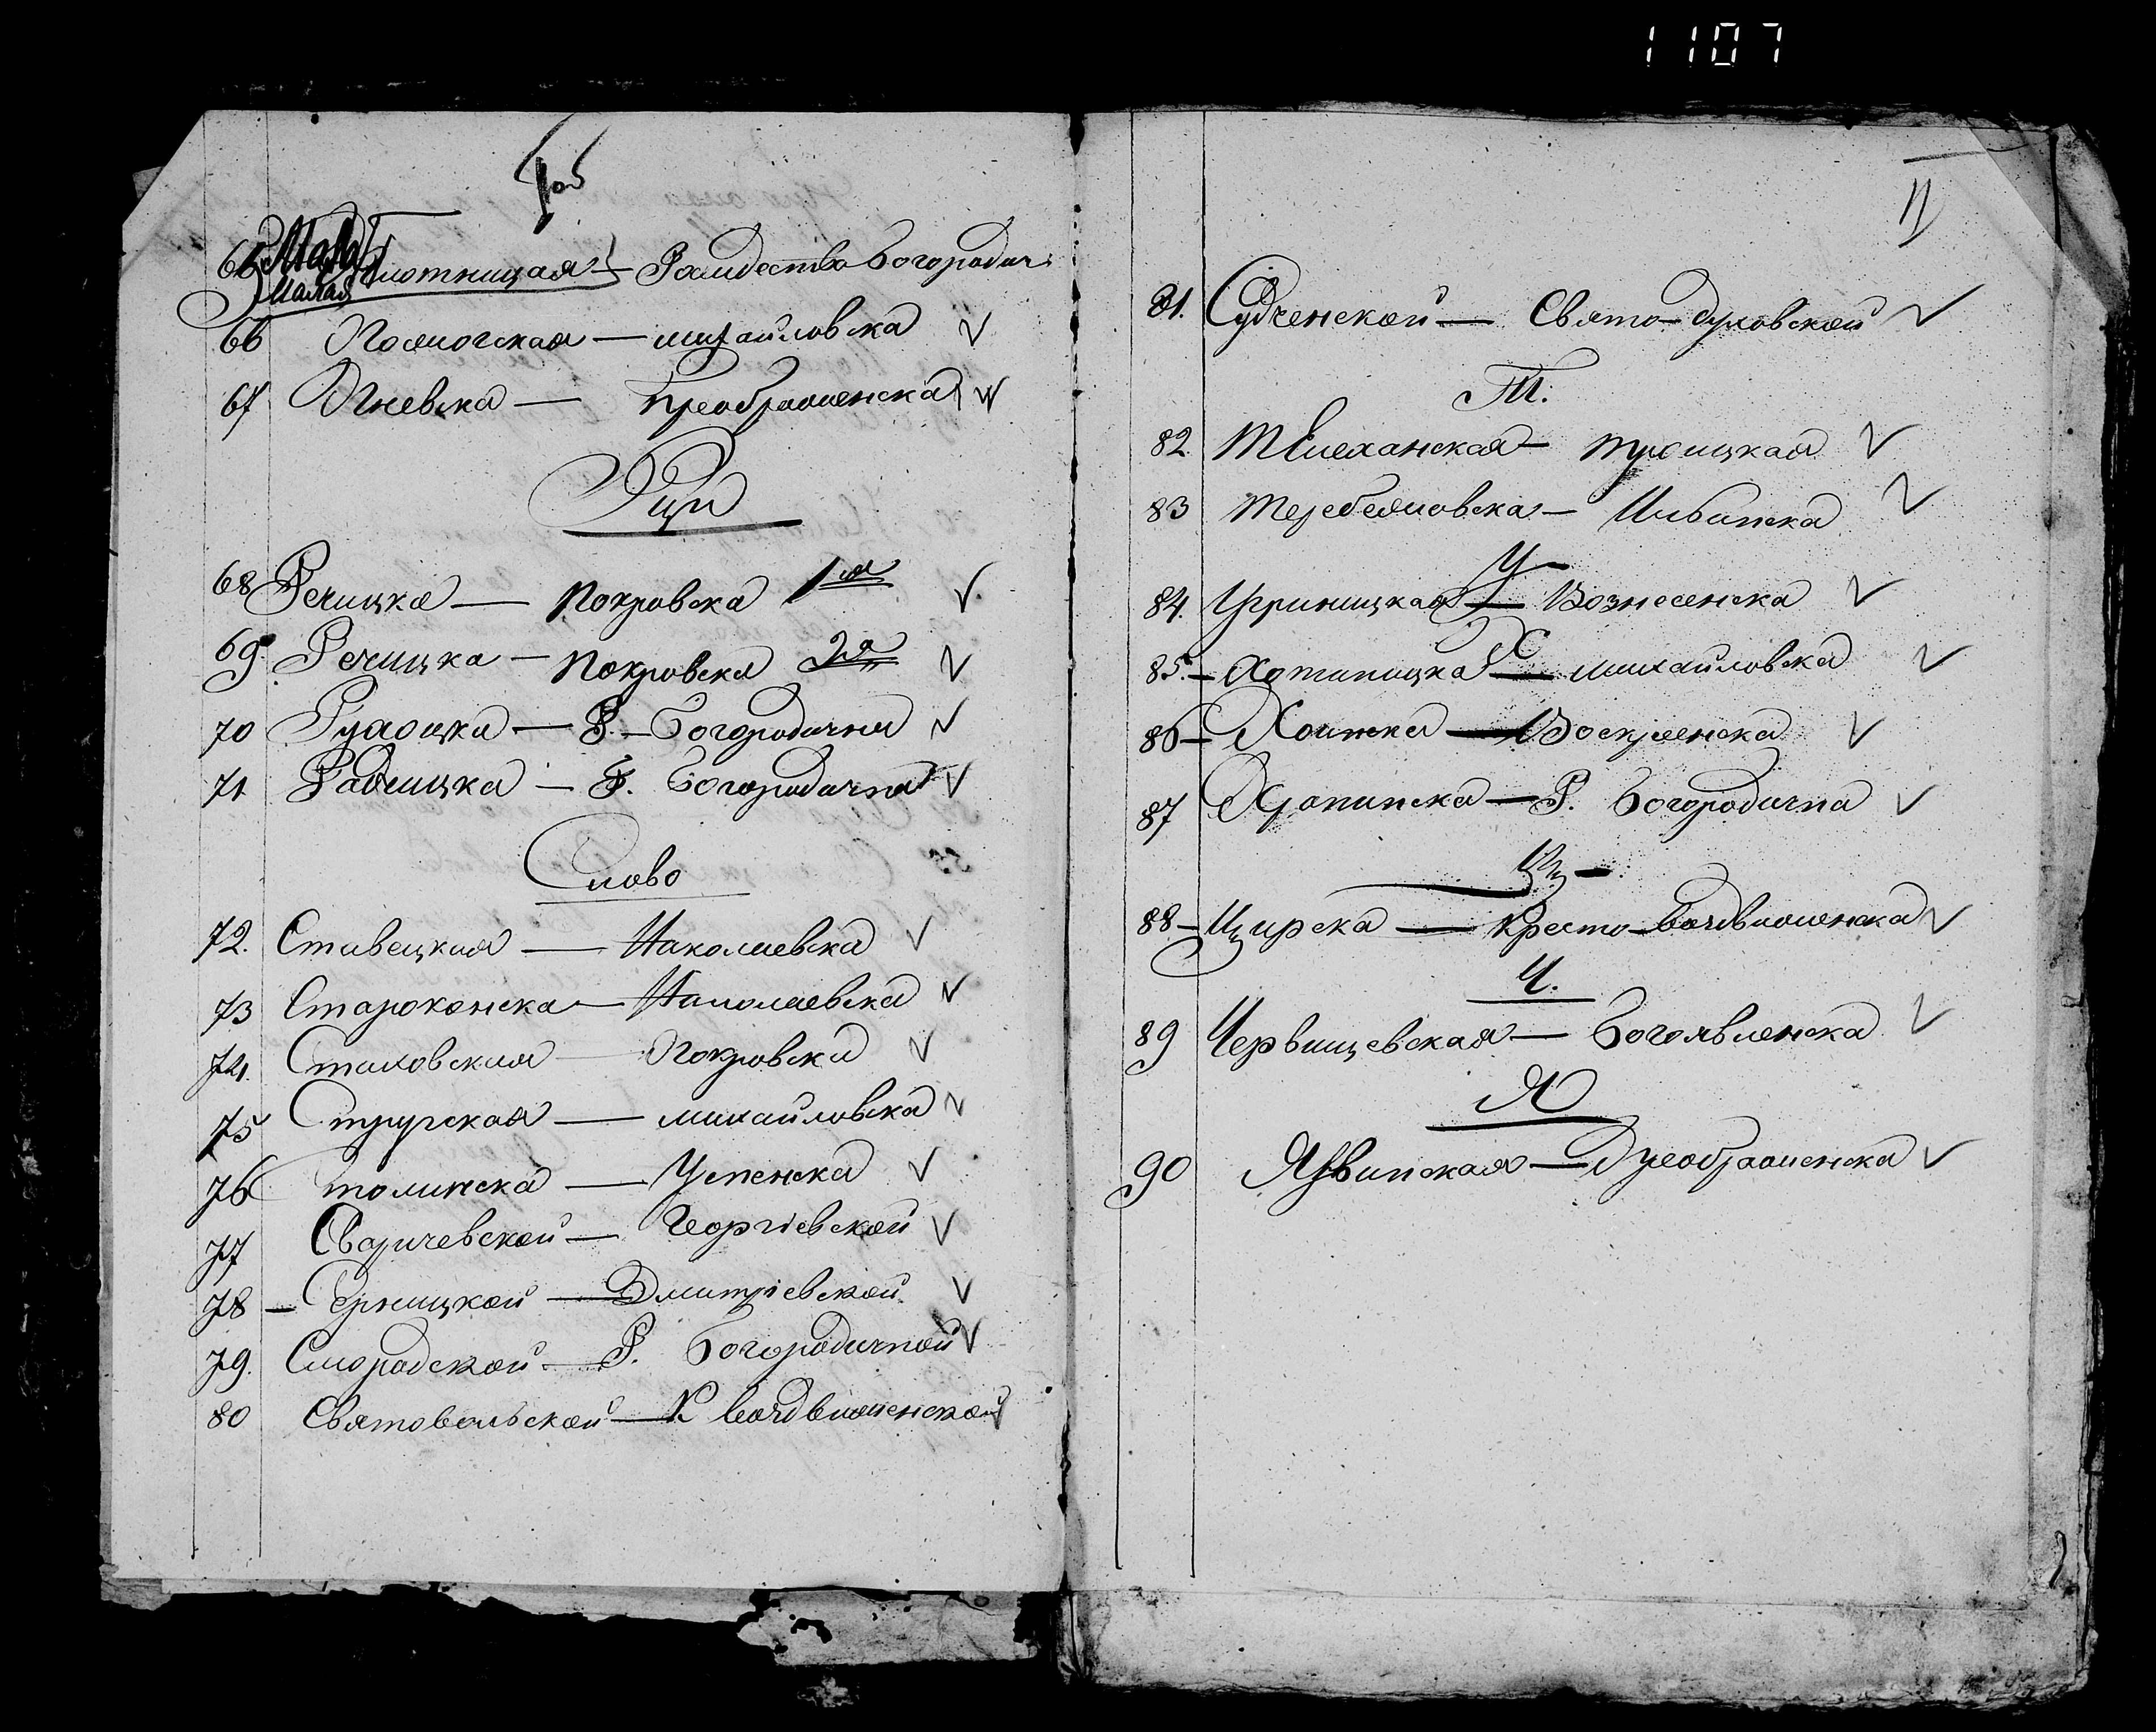 1107
65 Малая Плотницкая — Рождество Богородич
66 Полмогская — михайловска
67 Пневска — Преображенска
Рцы
68 Речицка — Покровска 1ая
69 Речицка — Покровска 2я
70 — Р. — Богородична
71 — Р. Богородична
Слово
72. Ставецкая — Николаевска
73 Староконска — Николаевска
74. Стаховская Покровска
75 Стругская — михайловска
76 Столинска — Успенска
77 Сваричевской — Георгіевской
78 — Серницкой — Дмитріевской
79. Смородской — Р. Богородичной
80 Святовольской — К. Воздвиженской
11
81. Судченской — Свято-духовской
Т.
82. Телеханская — троицкая
83 теребежовска — Ильинска
У
84. — Вознесенска
Х
85. — Хотиницка — михайловска
86 — Хоинска — Воскресенска
87 Храпинска — Р. Богородична
Щ
88 — Щирска — Кресто-воздвиженска
Ч.
89 Червищевская — Богоявленска
Я
90 Язвинская — Преображенска